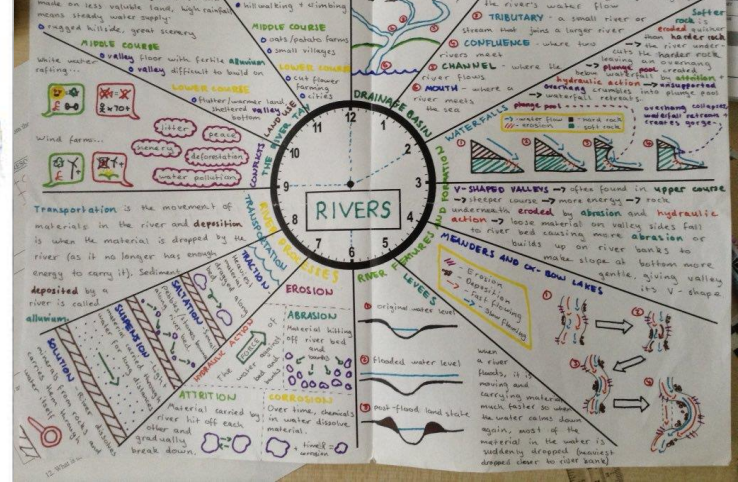 made on less valuable land, high rainfall
means steady water supply
rugged hillside, great scenery
MIDDLE COURSE
valley floor with fertile alluvium
valley difficult to build on
White water
rafting...
LOWER COURSE
flatter/warmer land
sheltered valley
bottom
Wind farms...
litter
peace
scenery
deforestation
water pollution
hillwalking + climbing
MIDDLE COURSE
oats/potato farms
small villages
LOWER COURSE
cut flower
farming
cities
LAND USE
THE RIVER TAY
CONFLICTS
DRAINAGE BASIN
the river's water flow
TRIBUTARY - a small river or
stream that joins a larger river
CONFLUENCE - where two
rivers meet
CHANNEL - where the
river flows
MOUTH - where a
river meets
the sea
WATERFALLS
Softer
rock is
eroded quicker
than harder rock
the river under-
cuts the harder rock
leaving an overhang
plunge pool created
below waterfall by attention +
hydraulic action → unsupported
overhang crumbles into plunge pool
waterfall retreats.
plunge pool
overhang collapses,
waterfall retreats +
creates gorge.
→ water flow
hard rock
erosion
soft rock
1 2 3 4
12
11
1
10
2
9
3
8
4
7
5
6
RIVERS
RIVER FEATURES AND FORMATION
V-SHAPED VALLEYS → often found in upper course
→ steeper course → more energy → rock
underneath eroded by abrasion and hydraulic
action → loose material on valley sides fall
to river bed causing more abrasion or
builds up on river banks to
make slope at bottom more
gentle, giving valley
its V-shape
MEANDERS AND OX-BOW LAKES
Erosion
Deposition
Fast flowing
Slow flowing
1
2
3
4
LEVEES
1 original water level
2 flooded water level
3 post-flood land state
When
a river
floods, it is
moving and
carrying material
much faster so when
the water calms down
again, most of the
material in the water is
suddenly dropped (heaviest
dropped closer to river bank)
RIVER PROCESSES
TRANSPORTATION
Transportation is the movement of
materials in the river and deposition
is when the material is dropped by the
river (as it no longer has enough
energy to carry it). Sediment
deposited by a
river is called
alluvium.
TRACTION
dragged along
bed
SALTATION
SUSPENSION
material carried through
water for long distances
SOLUTION
River dissolves
minerals from rocks and
carries them through
water itself
EROSION
HYDRAULIC ACTION
FORCE of
the water against
bed and
banks
ABRASION
Material hitting
off river bed
and banks
ATTRITION
Material carried by
river hit off each
other and
gradually
break down.
CORROSION
Over time, chemicals
in water dissolve
material.